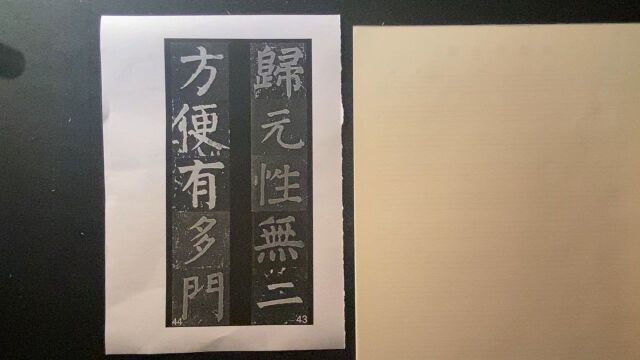 歸元性無二
43
方便有多門
44